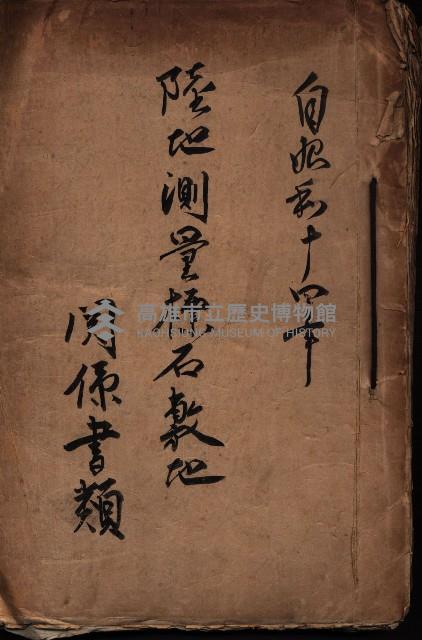 自昭和十四年
陸地測量標石敷地
関係書類
高雄市立歷史博物館
KAOHSIUNG MUSEUM OF HISTORY